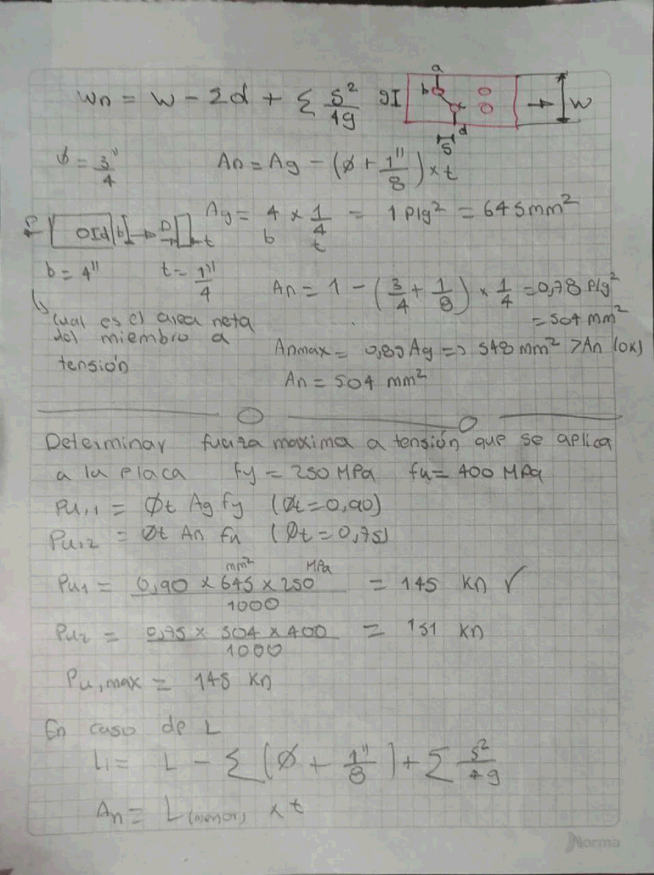 Wn = W - Σd + Σ S²/4g
a
b
gI
d
S
W
Ø = 3"/4
An = Ag - (Ø + 1"/8) × t
P
OId
b
t
Ag = 4 × 1/4 = 1 Plg² = 645mm²
b
t
b = 4"
t = 1"/4
An = 1 - (3/4 + 1/8) × 1/4 = 0,78 Plg²
= 504 mm²
cual es el area neta
del miembro a
tensión
Anmax = 0,85 Ag => 548 mm² > An (ok)
An = 504 mm²
Determinar fuerza maxima a tensión que se aplica
a la placa fy = 250 MPa fu = 400 MPa
Pu,1 = Øt Ag fy (Øt = 0,90)
Pu,2 = Øt An fu (Øt = 0,75)
Pu1 = 0,90 × 645 mm² × 250 MPa / 1000 = 145 kn ✓
Pu2 = 0,75 × 504 × 400 / 1000 = 151 kn
Pu,max = 145 kn
En caso de L
Li = L - Σ (Ø + 1"/8) + Σ S²/4g
An = L(menor) × t
Norma